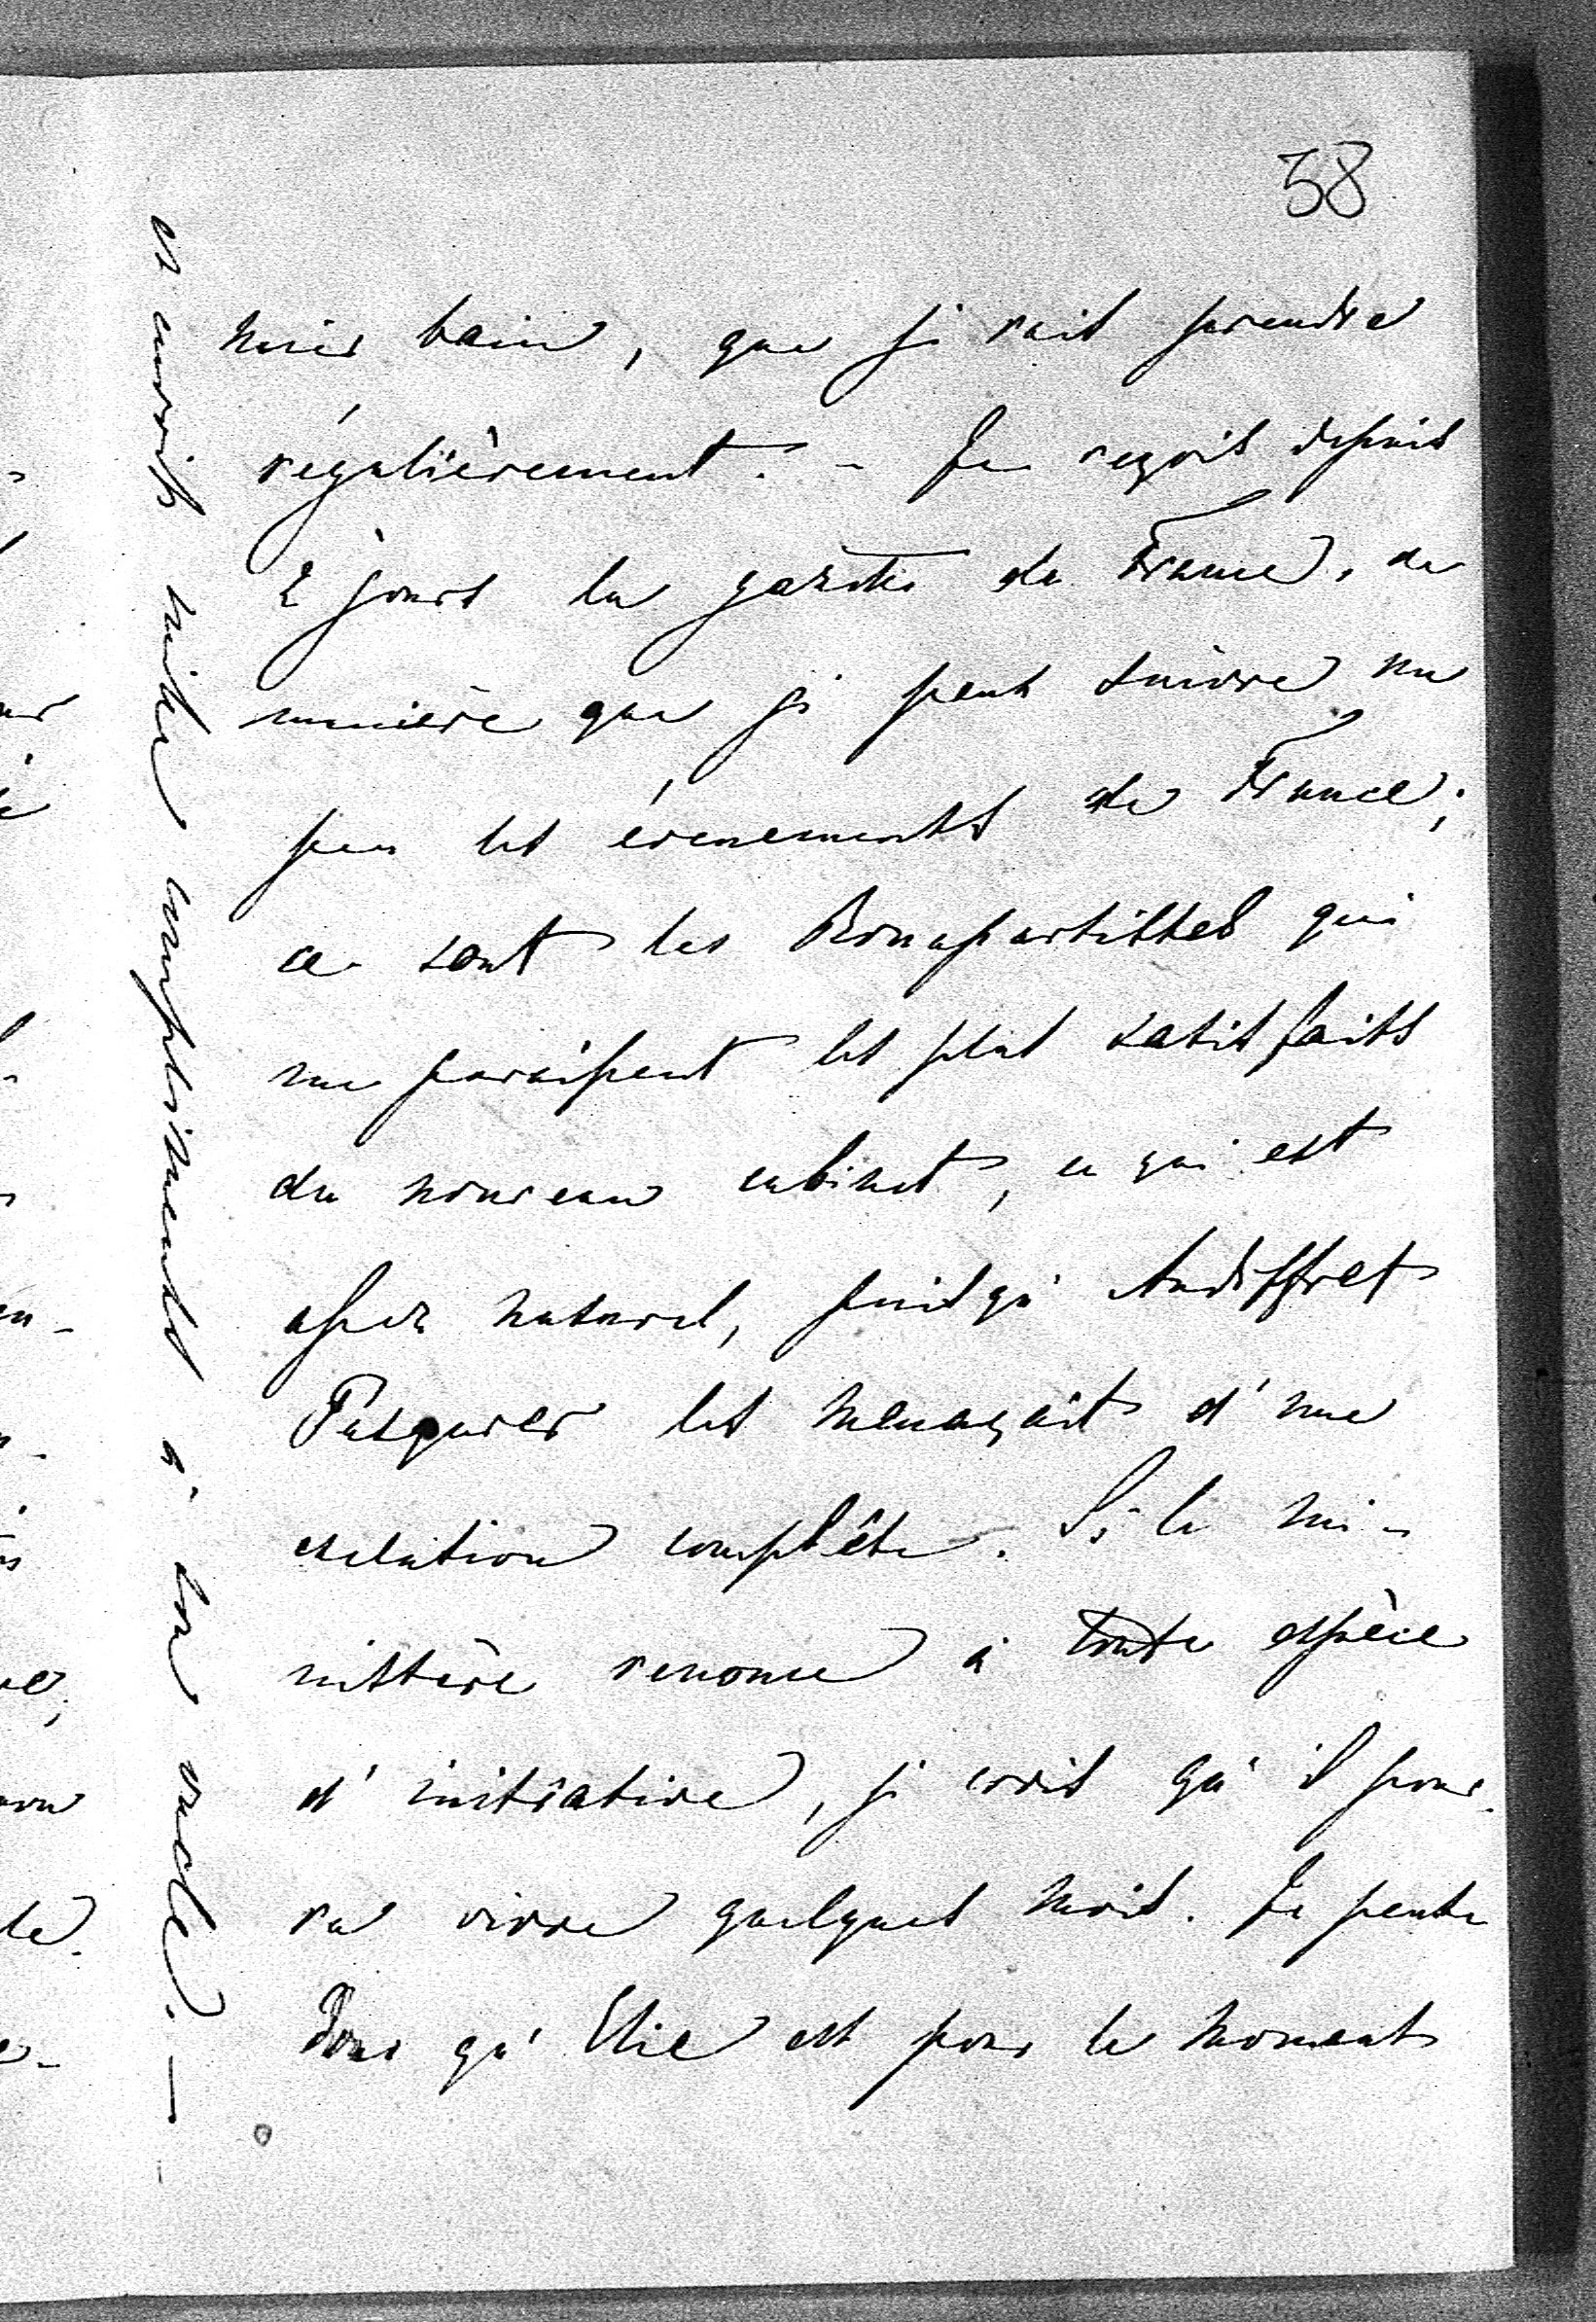 58
mier bain, que je vais prendre
régulièrement. - Je reçois depuis
2 jours la gazette de France, de
manière que je peux suivre un
peu les événements de France;
ce sont les Bonapartistes qui
me paraissent les plus satisfaits
du nouveau cabinet, ce qui est
assez naturel, puisqu'Audiffret
Pasquier les menaçait d'une
exclusion complête. Si le mi-
nistère renonce à toute espèce
d'initiative, je crois qu'il pour-
ra vivre quelques mois. Je pense
donc qu'Elie est pour le moment
et amitiés compliments à ton oncle. —